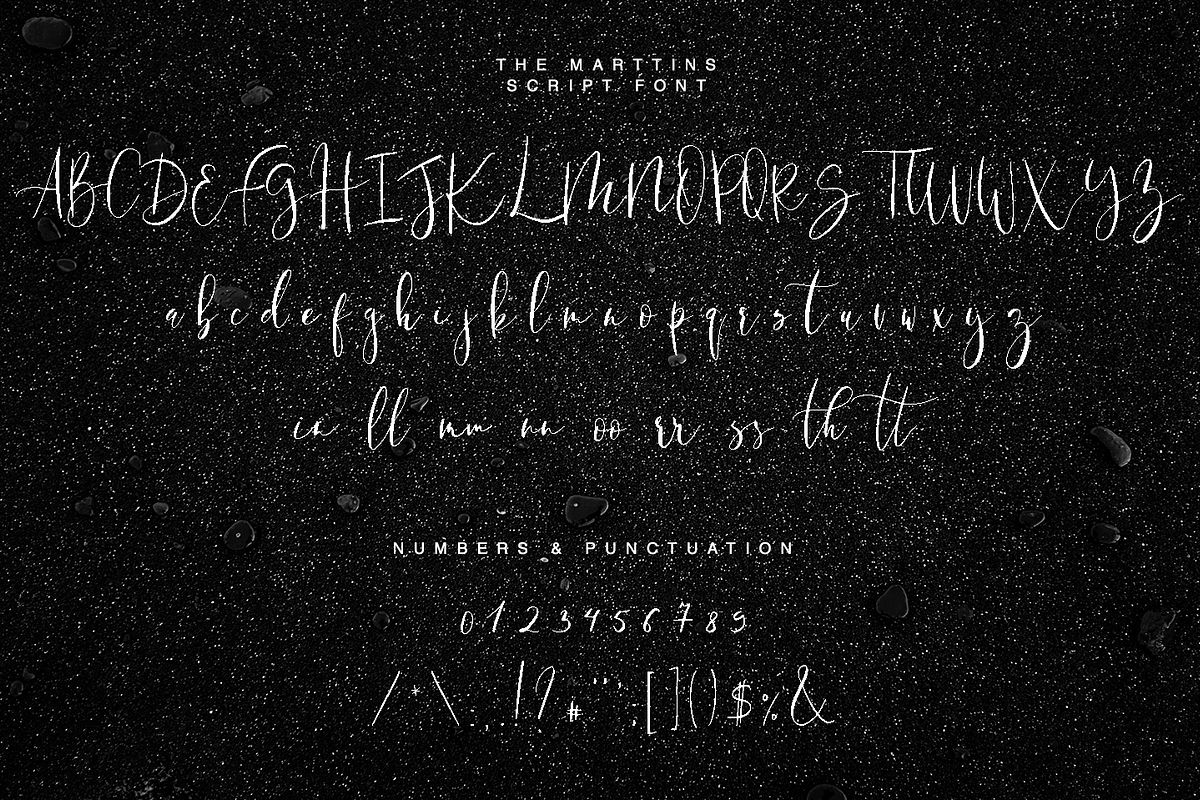 THE MARTTINS
SCRIPT FONT
ABCDEFGHIJKLMNOPQRSTUVWXYZ
a b c d e f g h i j k l m n o p q r s t u v w x y z
in ll mm nn oo rr ss th tt
NUMBERS & PUNCTUATION
0 1 2 3 4 5 6 7 8 9
/ * \ : , . ! ? # " ' ; [ ] ( ) $ % &